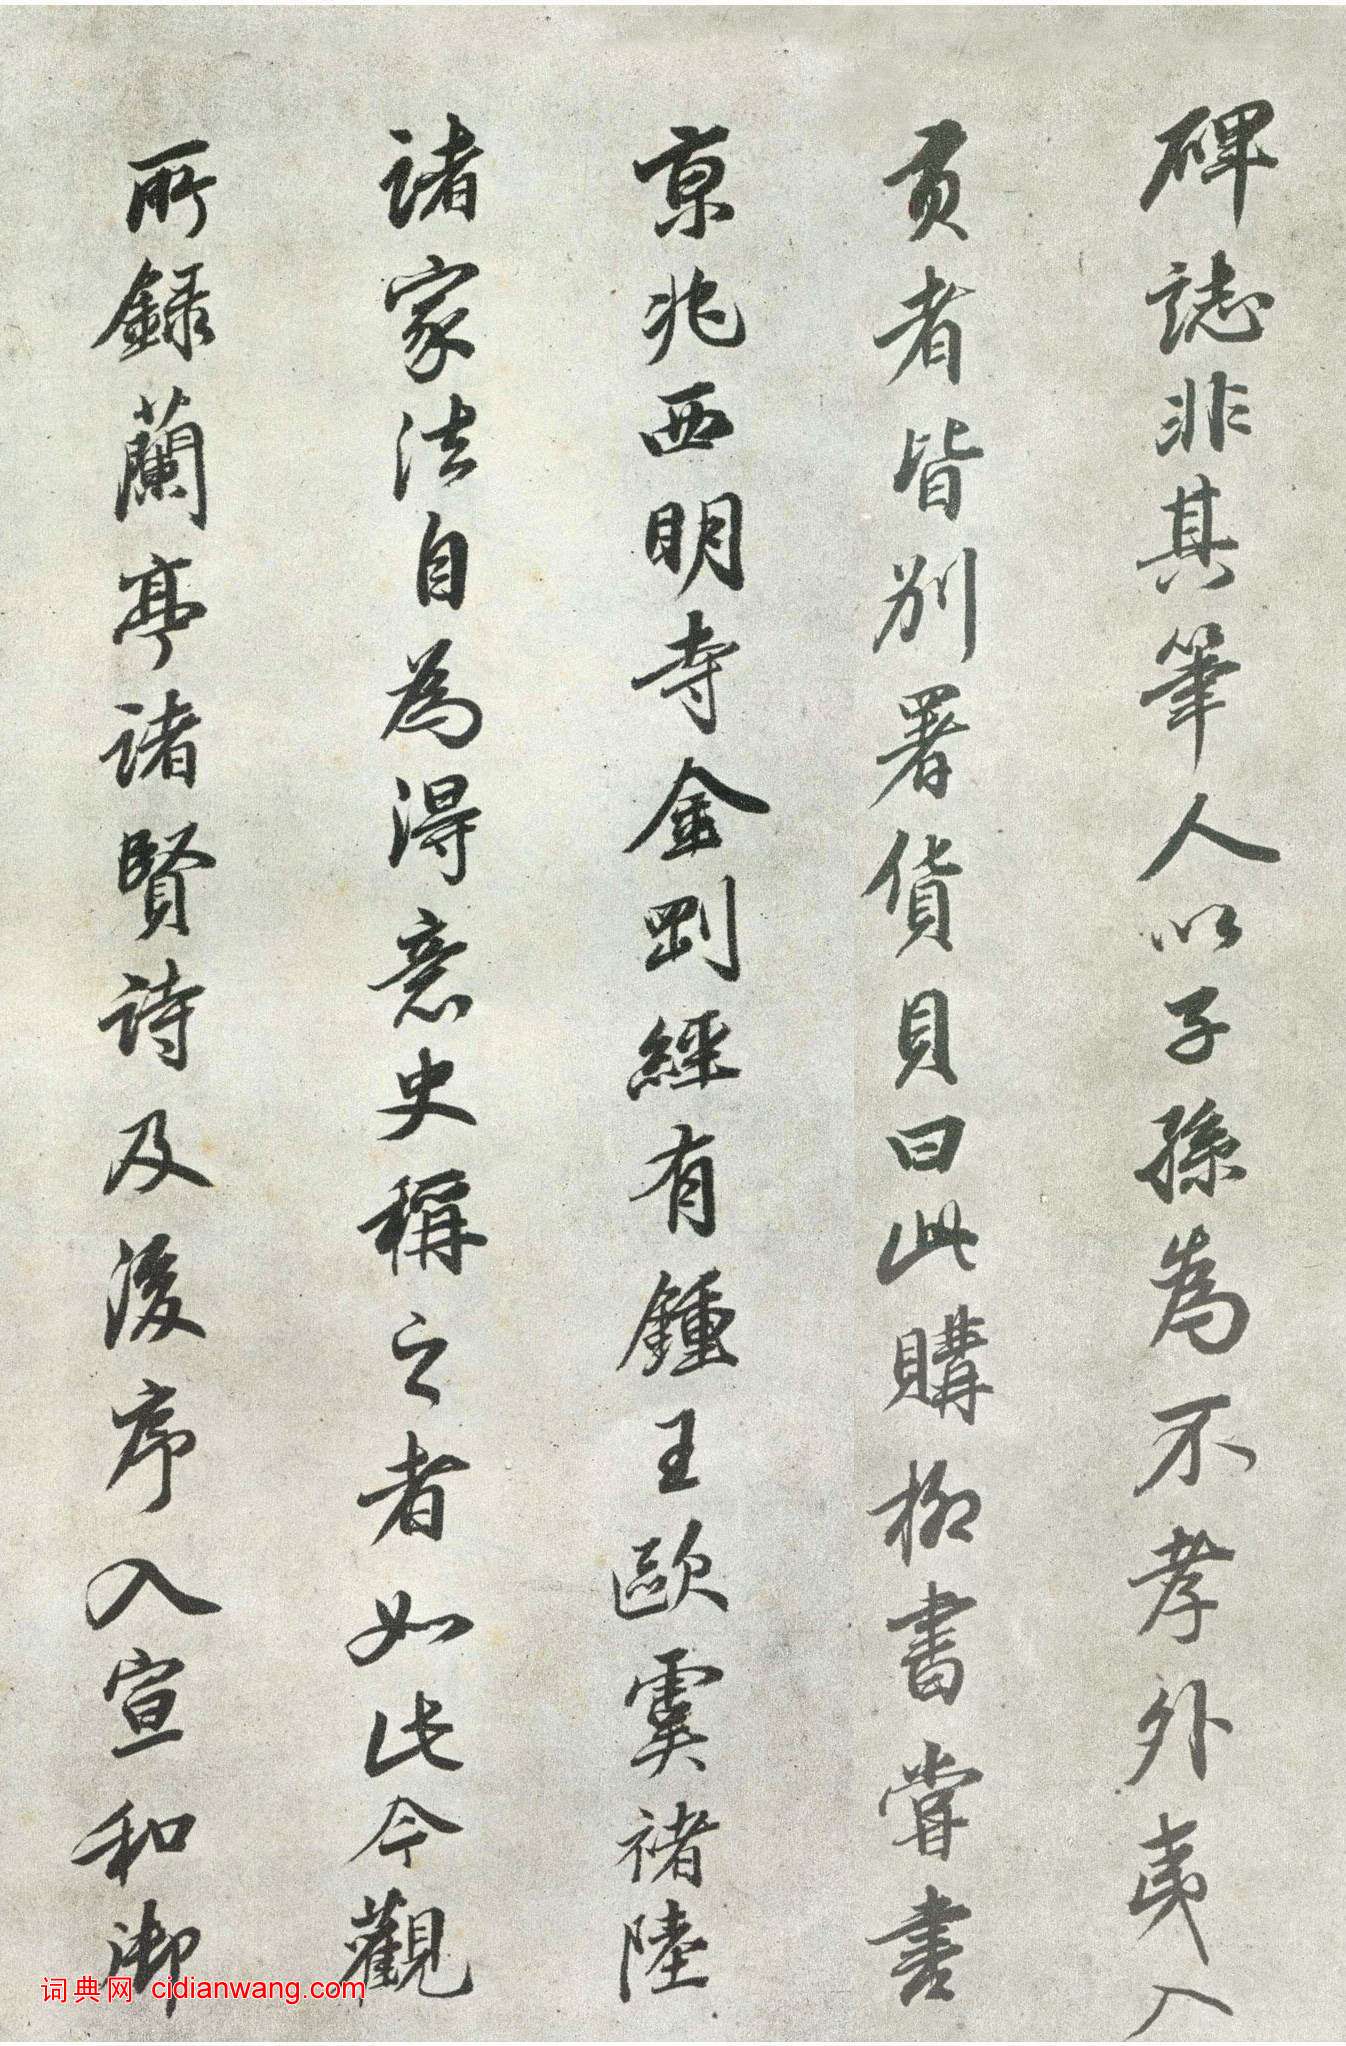 碑誌非其筆人以子孫為不孝外夷入
貢者皆別署貨貝曰此購柳書嘗書
京兆西明寺金剛經有鍾王歐虞褚陸
諸家法自為得意史稱之者如此今觀
所錄蘭亭諸賢詩及後序入宣和御
词典网 cidianwang.com